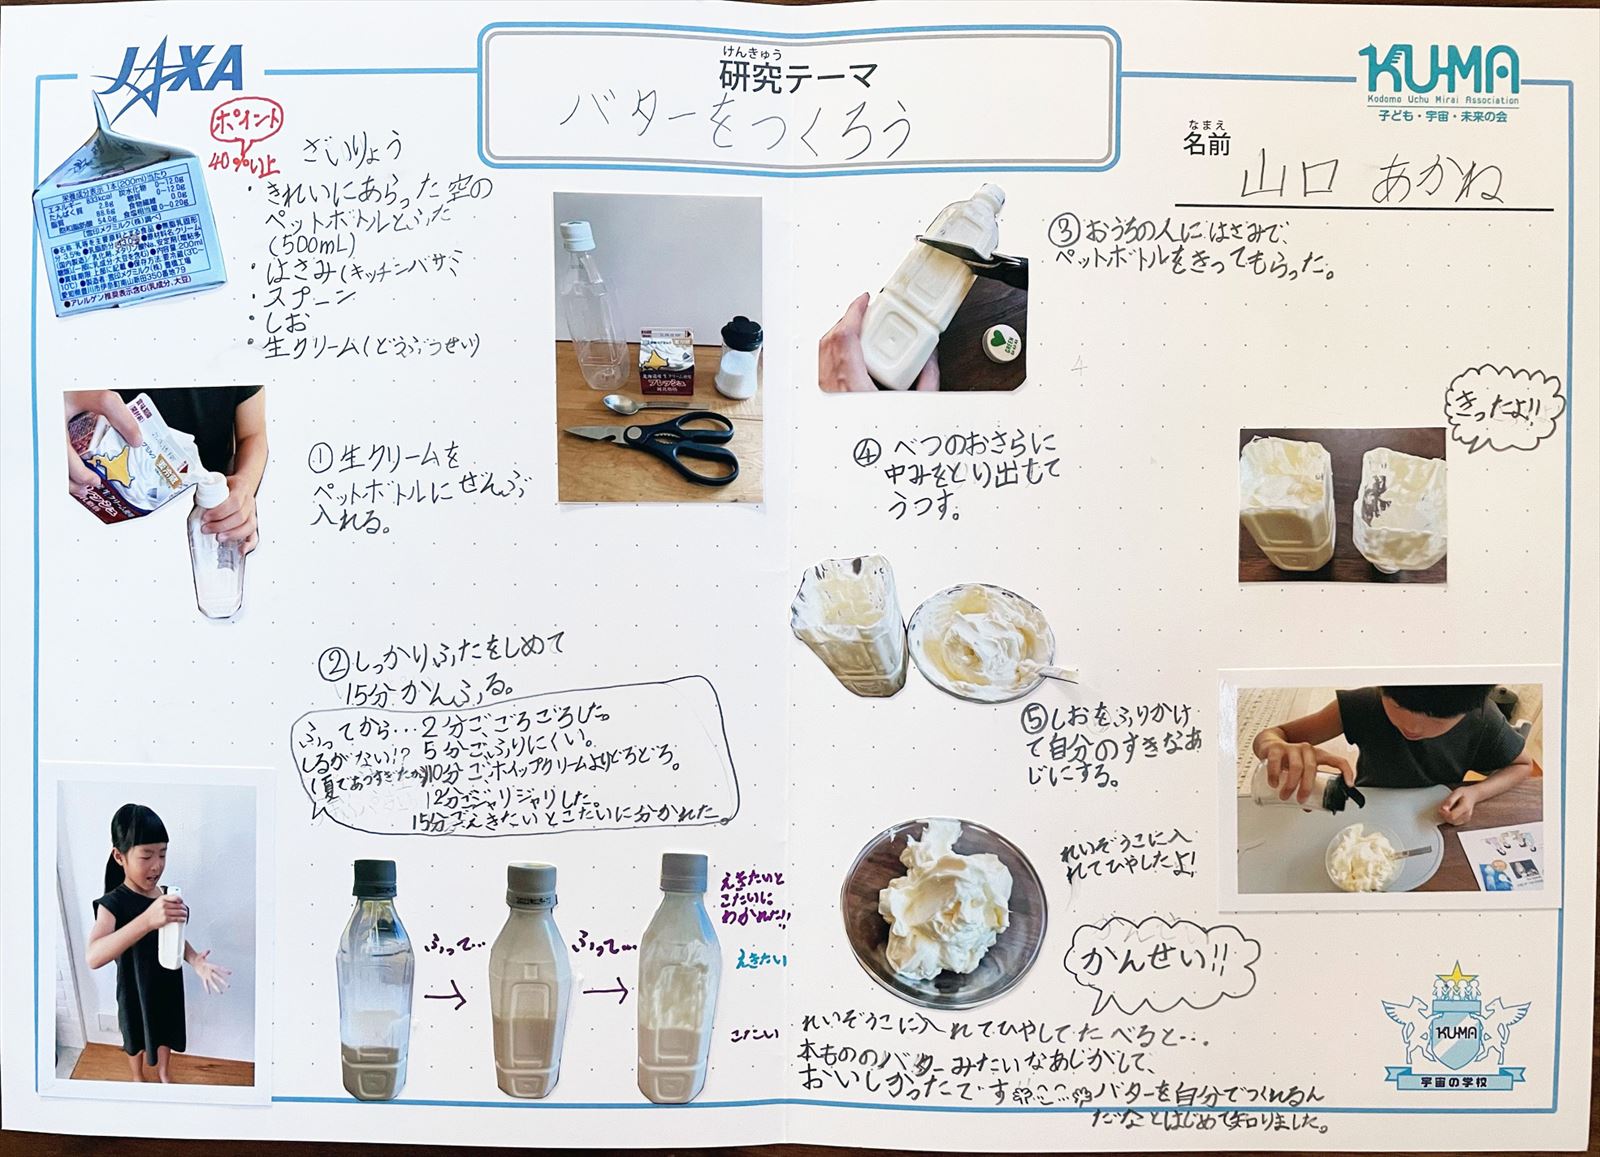 JAXA
けんきゅう
研究テーマ
バターをつくろう
KUMA
Kodomo Uchu Mirai Association
子ども・宇宙・未来の会
なまえ
名前
山口 あかね
ポイント
40%以上
ざいりょう
・きれいにあらった空の
ペットボトルとふた
(500mL)
・はさみ(キッチンバサミ
・スプーン
・しお
・生クリーム(どうぶつせい)
栄養成分表示 1本(200ml)当たり
エネルギー 833kcal 炭水化物 0~12.0g
たんぱく質 2.8g 糖質 0~12.0g
脂質 88.6g 食物繊維 0.0g
飽和脂肪酸 54.0g 食塩相当量 0~0.20g
●アレルゲン推奨表示含む(乳成分、大豆)
フレッシュ
①生クリームを
ペットボトルにぜんぶ
入れる。
②しっかりふたをしめて
15分かんふる。
ふってから…2分ごごろごろした
しるがない!? 5分ご、ふりにくい。
(夏であつすぎたから)10分ご、ホイップクリームよりどろどろ。
12分ごジャリジャリした。
15分ごえきたいとこたいに分かれた。
ふって…
ふって…
えきたいと
こたいに
わかれた!!
えきたい
こたい
③おうちの人にはさみで、
ペットボトルをきってもらった。
GREEN
きったよ!!
④べつのおさらに
中みをとり出して
うつす。
⑤しおをふりかけ
て自分のすきなあ
じにする。
れいぞうこに入
れてひやしたよ!
かんせい!!
れいぞうこに入れてひやしてたべると…。
本もののバターみたいなあじがして、
おいしかったてす バターを自分でつくれるん
だなとはじめて知りました。
KUMA
宇宙の学校